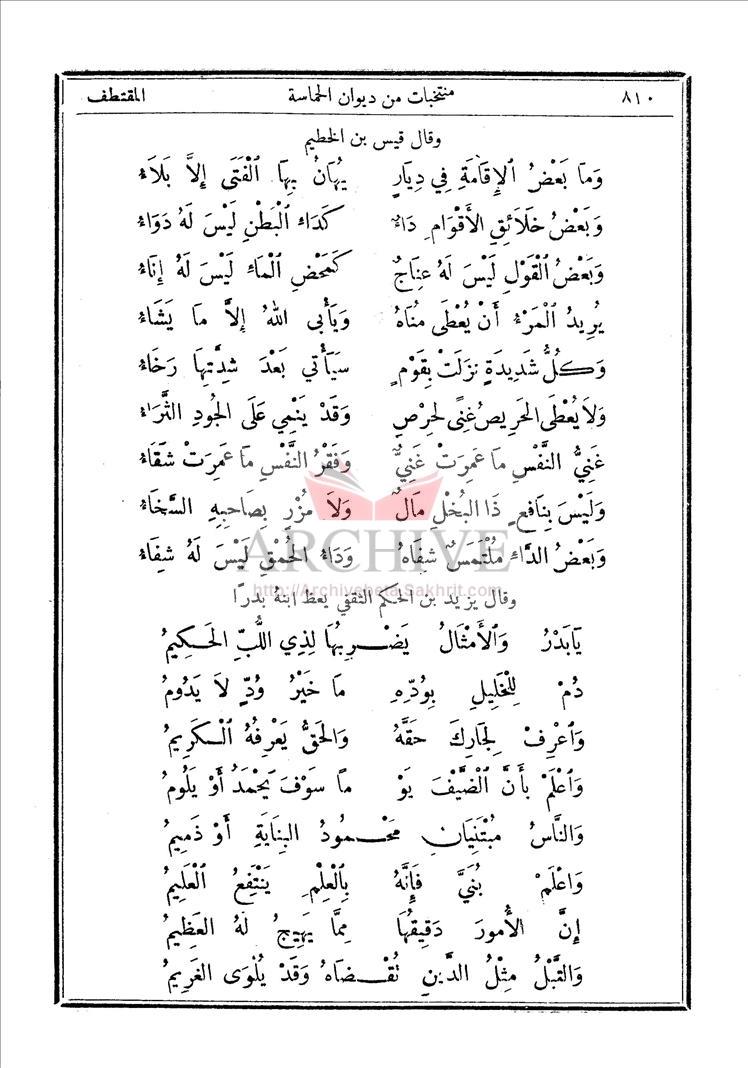 ٨١٠ منتخبات من ديوان الحماسة المقتطف
وقال قيس بن الخطيم
وَمَا بَعْضُ الْإِقَامَةِ فِي دِيَارٍ يُهَانُ بِهَا الْفَتَى إِلَّا بَلَاءُ
وَبَعْضُ خَلَائِقِ الأَقْوَامِ دَاءٌ كَدَاءِ الْبَطْنِ لَيْسَ لَهُ دَوَاءُ
وَبَعْضُ الْقَوْلِ لَيْسَ لَهُ عِنَاجٌ كَمَحْضِ الْمَاءِ لَيْسَ لَهُ إِنَاءُ
يُرِيدُ الْمَرْءُ أَنْ يُعْطَى مُنَاهُ وَيَأْبَى اللهُ إِلَّا مَا يَشَاءُ
وَكُلُّ شَدِيدَةٍ نَزَلَتْ بِقَوْمٍ سَيَأْتِي بَعْدَ شِدَّتِهَا رَخَاءُ
وَلَا يُعْطَى الحَرِيصُ غِنًى لِحِرْصٍ وَقَدْ يَنْمِي عَلَى الجُودِ الثَّرَاءُ
غَنِيُّ النَّفْسِ مَا عَمِرَتْ غَنِيٌّ وَفَقْرُ النَّفْسِ مَا عَمِرَتْ شَقَاءُ
وَلَيْسَ بِنَافِعٍ ذَا البُخْلِ مَالٌ وَلَا مُزْرٍ بِصَاحِبِهِ السَّخَاءُ
وَبَعْضُ الدَّاءِ مُلْتَمَسٌ شِفَاهُ وَدَاءُ الحُمْقِ لَيْسَ لَهُ شِفَاءُ
ARCHIVE
http://Archivebeta.Sakhrit.com
وقال يزيد بن الحكم الثقفي يعظ ابنهُ بدرًا
يَابَدْرُ وَالأَمْثَالُ يَضْرِبُهَا لِذِي اللُّبِّ الحَكِيمُ
دُمْ لِلْخَلِيلِ بِوُدِّهِ مَا خَيْرُ وُدٍّ لَا يَدُومُ
وَاعْرِفْ لِجَارِكَ حَقَّهُ وَالحَقُّ يَعْرِفُهُ الْكَرِيمُ
وَاعْلَمْ بِأَنَّ الْضَّيْفَ يَوْ مًا سَوْفَ يَحْمَدُ أَوْ يَلُومُ
وَالنَّاسُ مُبْتَنِيَانِ مَحْمُودُ البِنَايَةِ أَوْ ذَمِيمُ
وَاعْلَمْ بُنَيَّ فَإِنَّهُ بِالْعِلْمِ يَنْتَفِعُ الْعَلِيمُ
إِنَّ الأُمورَ دَقِيقُهَا مِمَّا يَهِيجُ لَهُ العَظِيمُ
وَالتَّبْلُ مِثْلُ الدَّيْنِ تُقْضَاهُ وَقَدْ يُلْوَى الغَرِيمُ